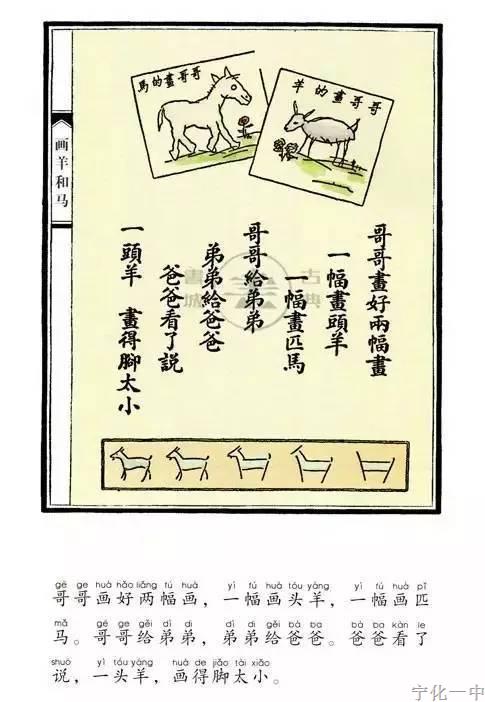 哥哥畫的馬
哥哥畫的羊
画羊和马
哥哥畫好兩幅畫
一幅畫頭羊
一幅畫匹馬
哥哥給弟弟
弟弟給爸爸
爸爸看了說
一頭羊 畫得腳太小
古典書城
gē ge huà hǎo liǎng fú huà yì fú huà tóu yáng yì fú huà pǐ
哥哥画好两幅画，一幅画头羊，一幅画匹
mǎ gē ge gěi dì di dì di gěi bà ba bà ba kàn le
马。哥哥给弟弟，弟弟给爸爸。爸爸看了
shuō yì tóu yáng huà de jiǎo tài xiǎo
说，一头羊，画得脚太小。
宁化一中